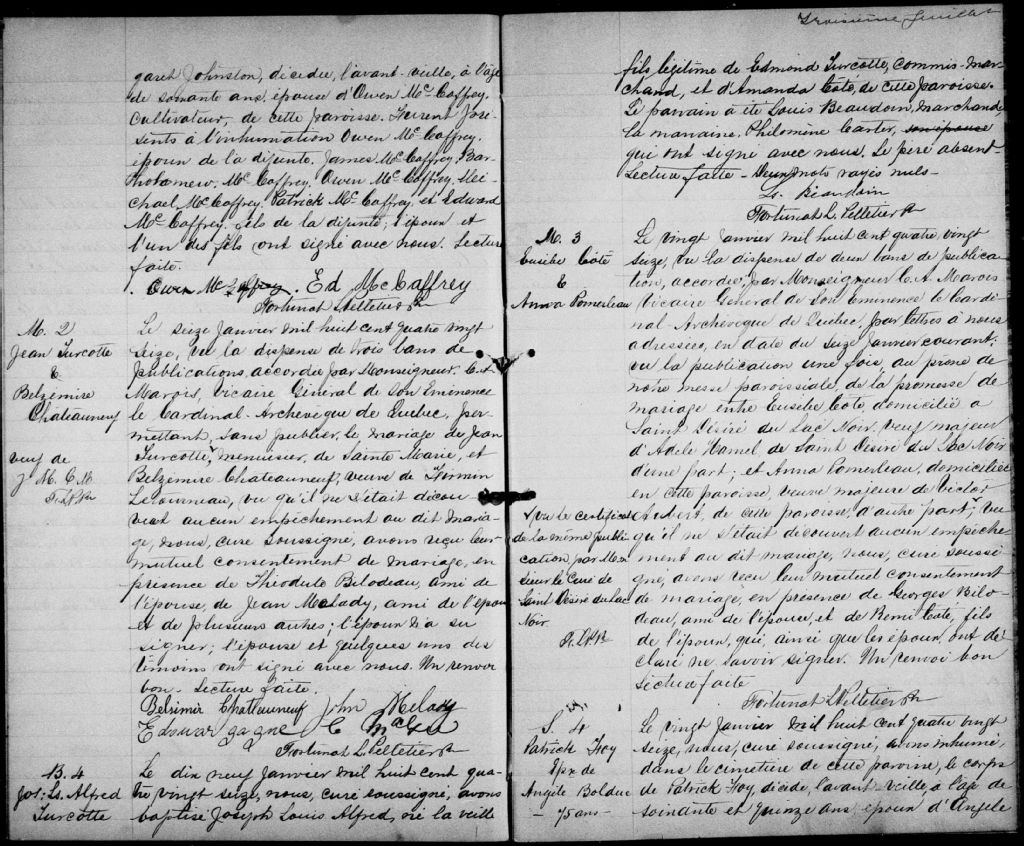 garet Johnston, décédée, l'avant-veille, à l'âge
de soixante ans, épouse d'Owen McCaffrey,
cultivateur, de cette paroisse. Furent pré-
sents à l'inhumation Owen McCaffrey,
époux de la défunte, James McCaffrey, Bar-
tholomew McCaffrey, Owen McCaffrey, Mi-
chael McCaffrey, Patrick McCaffrey, et Edward
McCaffrey, fils de la défunte; l'époux et
l'un des fils ont signé avec nous. Lecture
faite.
Owen McCaffrey Ed McCaffrey
Fortunat L Pelletier Ptr
M. 2
Jean Turcotte
&
Belzémire
Chateauneuf
veuf de
M. C. N.
F. L. P. Ptr
Le seize Janvier mil huit cent quatre vingt
seize, vu la dispense de trois bans de
publications, accordée par Monseigneur C. A.
Marois, vicaire Général de Son Eminence
le Cardinal-Archevêque de Québec, per-
mettant, sans publier, le mariage de Jean
Turcotte, menuisier, de Sainte Marie, et
Belzémire Chateauneuf, veuve de Firmin
Letourneau, vu qu'il ne s'était décou-
vert aucun empêchement au dit maria-
ge, nous, curé soussigné, avons reçu leur
mutuel consentement de mariage, en
présence de Théodule Bilodeau, ami de
l'épouse, de Jean Melady, ami de l'époux
et de plusieurs autres; l'époux n'a su
signer; l'épouse et quelques uns des
témoins ont signé avec nous. Un renvoi
bon. Lecture faite.
Belsimir Chattauneuf John Melady
Edouar gagne
Fortunat L. Pelletier Ptr
B. 4
Jos: Ls. Alfred
Turcotte
Le dix neuf Janvier mil huit cent qua-
tre vingt seize, nous, curé soussigné, avons
baptisé Joseph Louis Alfred, né la veille
Troisième feuillet
fils légitime de Edmond Turcotte, commis-mar-
chand, et d'Amanda Coté, de cette paroisse.
Le parrain a été Louis Beaudoin, marchand,
la marraine, Philomène Carter, son épouse
qui ont signé avec nous. Le père absent.
Lecture faite - Deux mots rayés nuls -
Ls. Beaudoin
Fortunat L. Pelletier Ptr
M. 3
Eusèbe Coté
&
Anna Pomerleau
Le vingt Janvier mil huit cent quatre vingt
seize, vu la dispense de deux bans de publica-
tion, accordée, par Monseigneur C. A. Marois
Vicaire Général de Son Eminence le Cardi-
nal-Archevêque de Québec, par lettres à nous
adressées, en date du seize Janvier courant;
vu la publication une fois, au prône de
notre messe paroissiale, de la promesse de
mariage entre Eusèbe Coté, domicilié à
Saint Désiré du Lac Noir, veuf majeur
d'Adèle Hamel de Saint Désiré du Lac Noir
d'une part; et Anna Pomerleau, domiciliée
en cette paroisse, veuve majeure de Victor
Aubert, de cette paroisse, d'autre part; vu
qu'il ne s'était découvert aucun empêche-
ment au dit mariage, nous, curé soussi-
gné, avons reçu leur mutuel consentement
de mariage, en présence de Georges Bilo-
deau, ami de l'épouse, et de Rémi Coté, fils
de l'époux, qui, ainsi que les époux, ont dé-
claré ne savoir signer. Un renvoi bon
Lecture faite
Fortunat L Pelletier Ptr
vu le certificat
de la même publi
cation, par Mon
sieur le Curé de
Saint Désiré du Lac
Noir.
F. L. P. Ptr
S. 4
Patrick Foy
Epx de
Angèle Bolduc
- 75 ans -
Le vingt Janvier mil huit cent quatre vingt
seize, nous, curé soussigné, avons inhumé,
dans le cimetière de cette paroisse, le corps
de Patrick Foy, décédé, l'avant-veille à l'âge de
soixante et quinze ans, époux d'Angèle